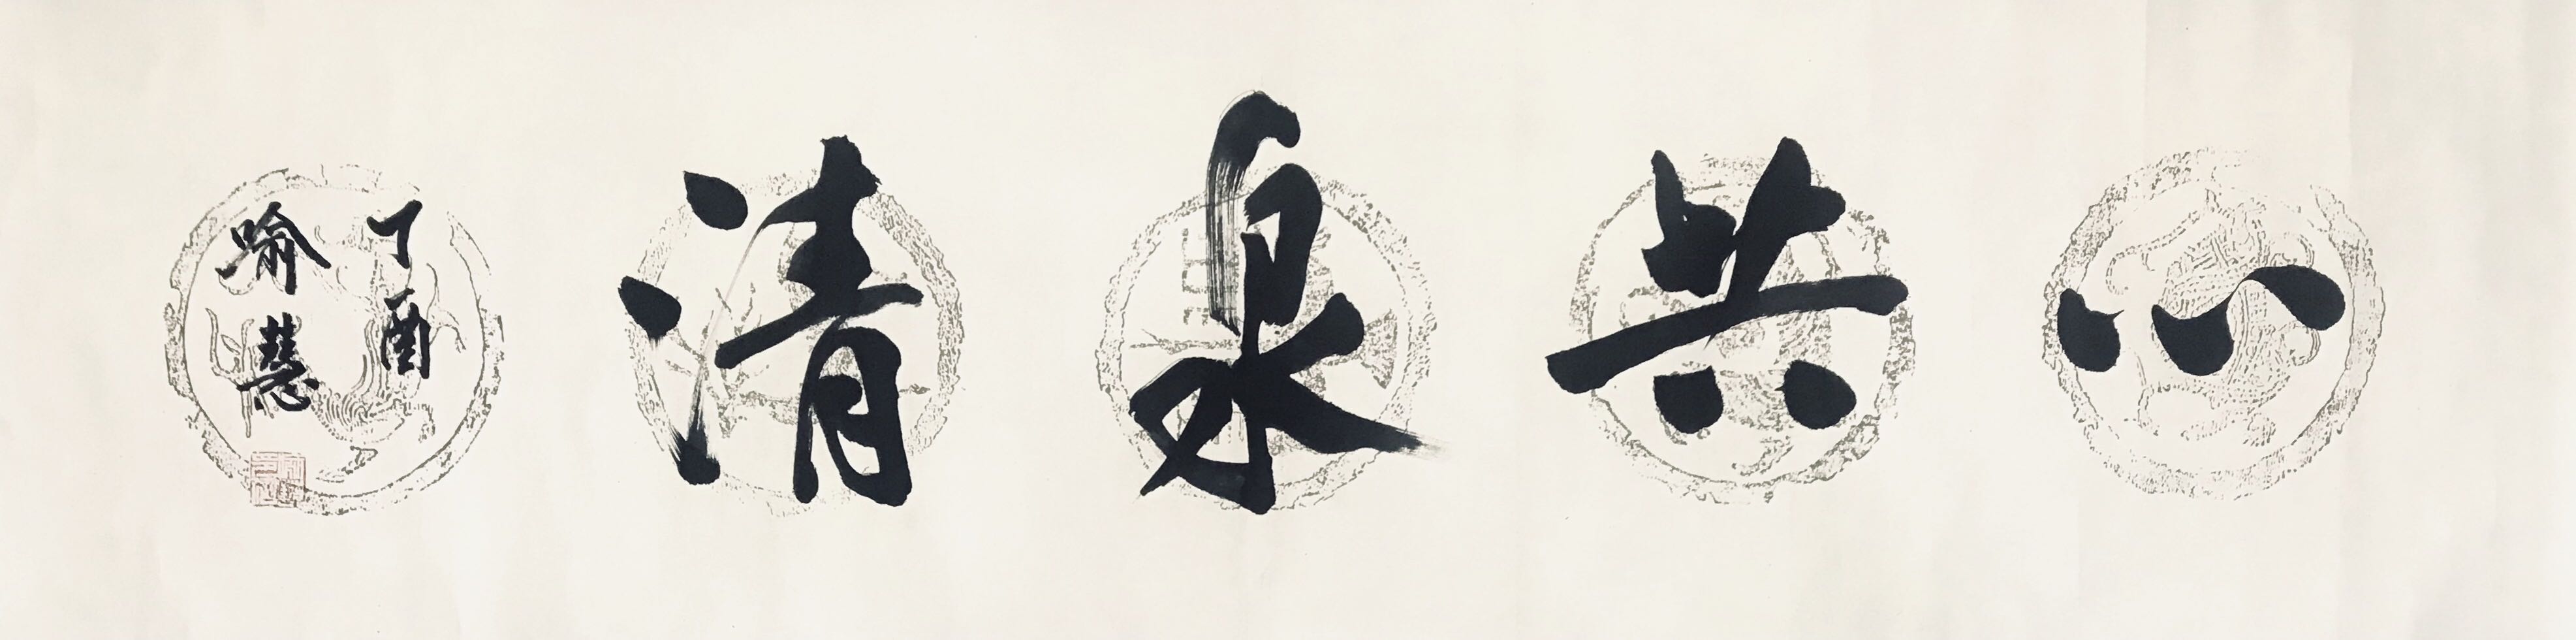 心共泉清
丁酉
喻慧